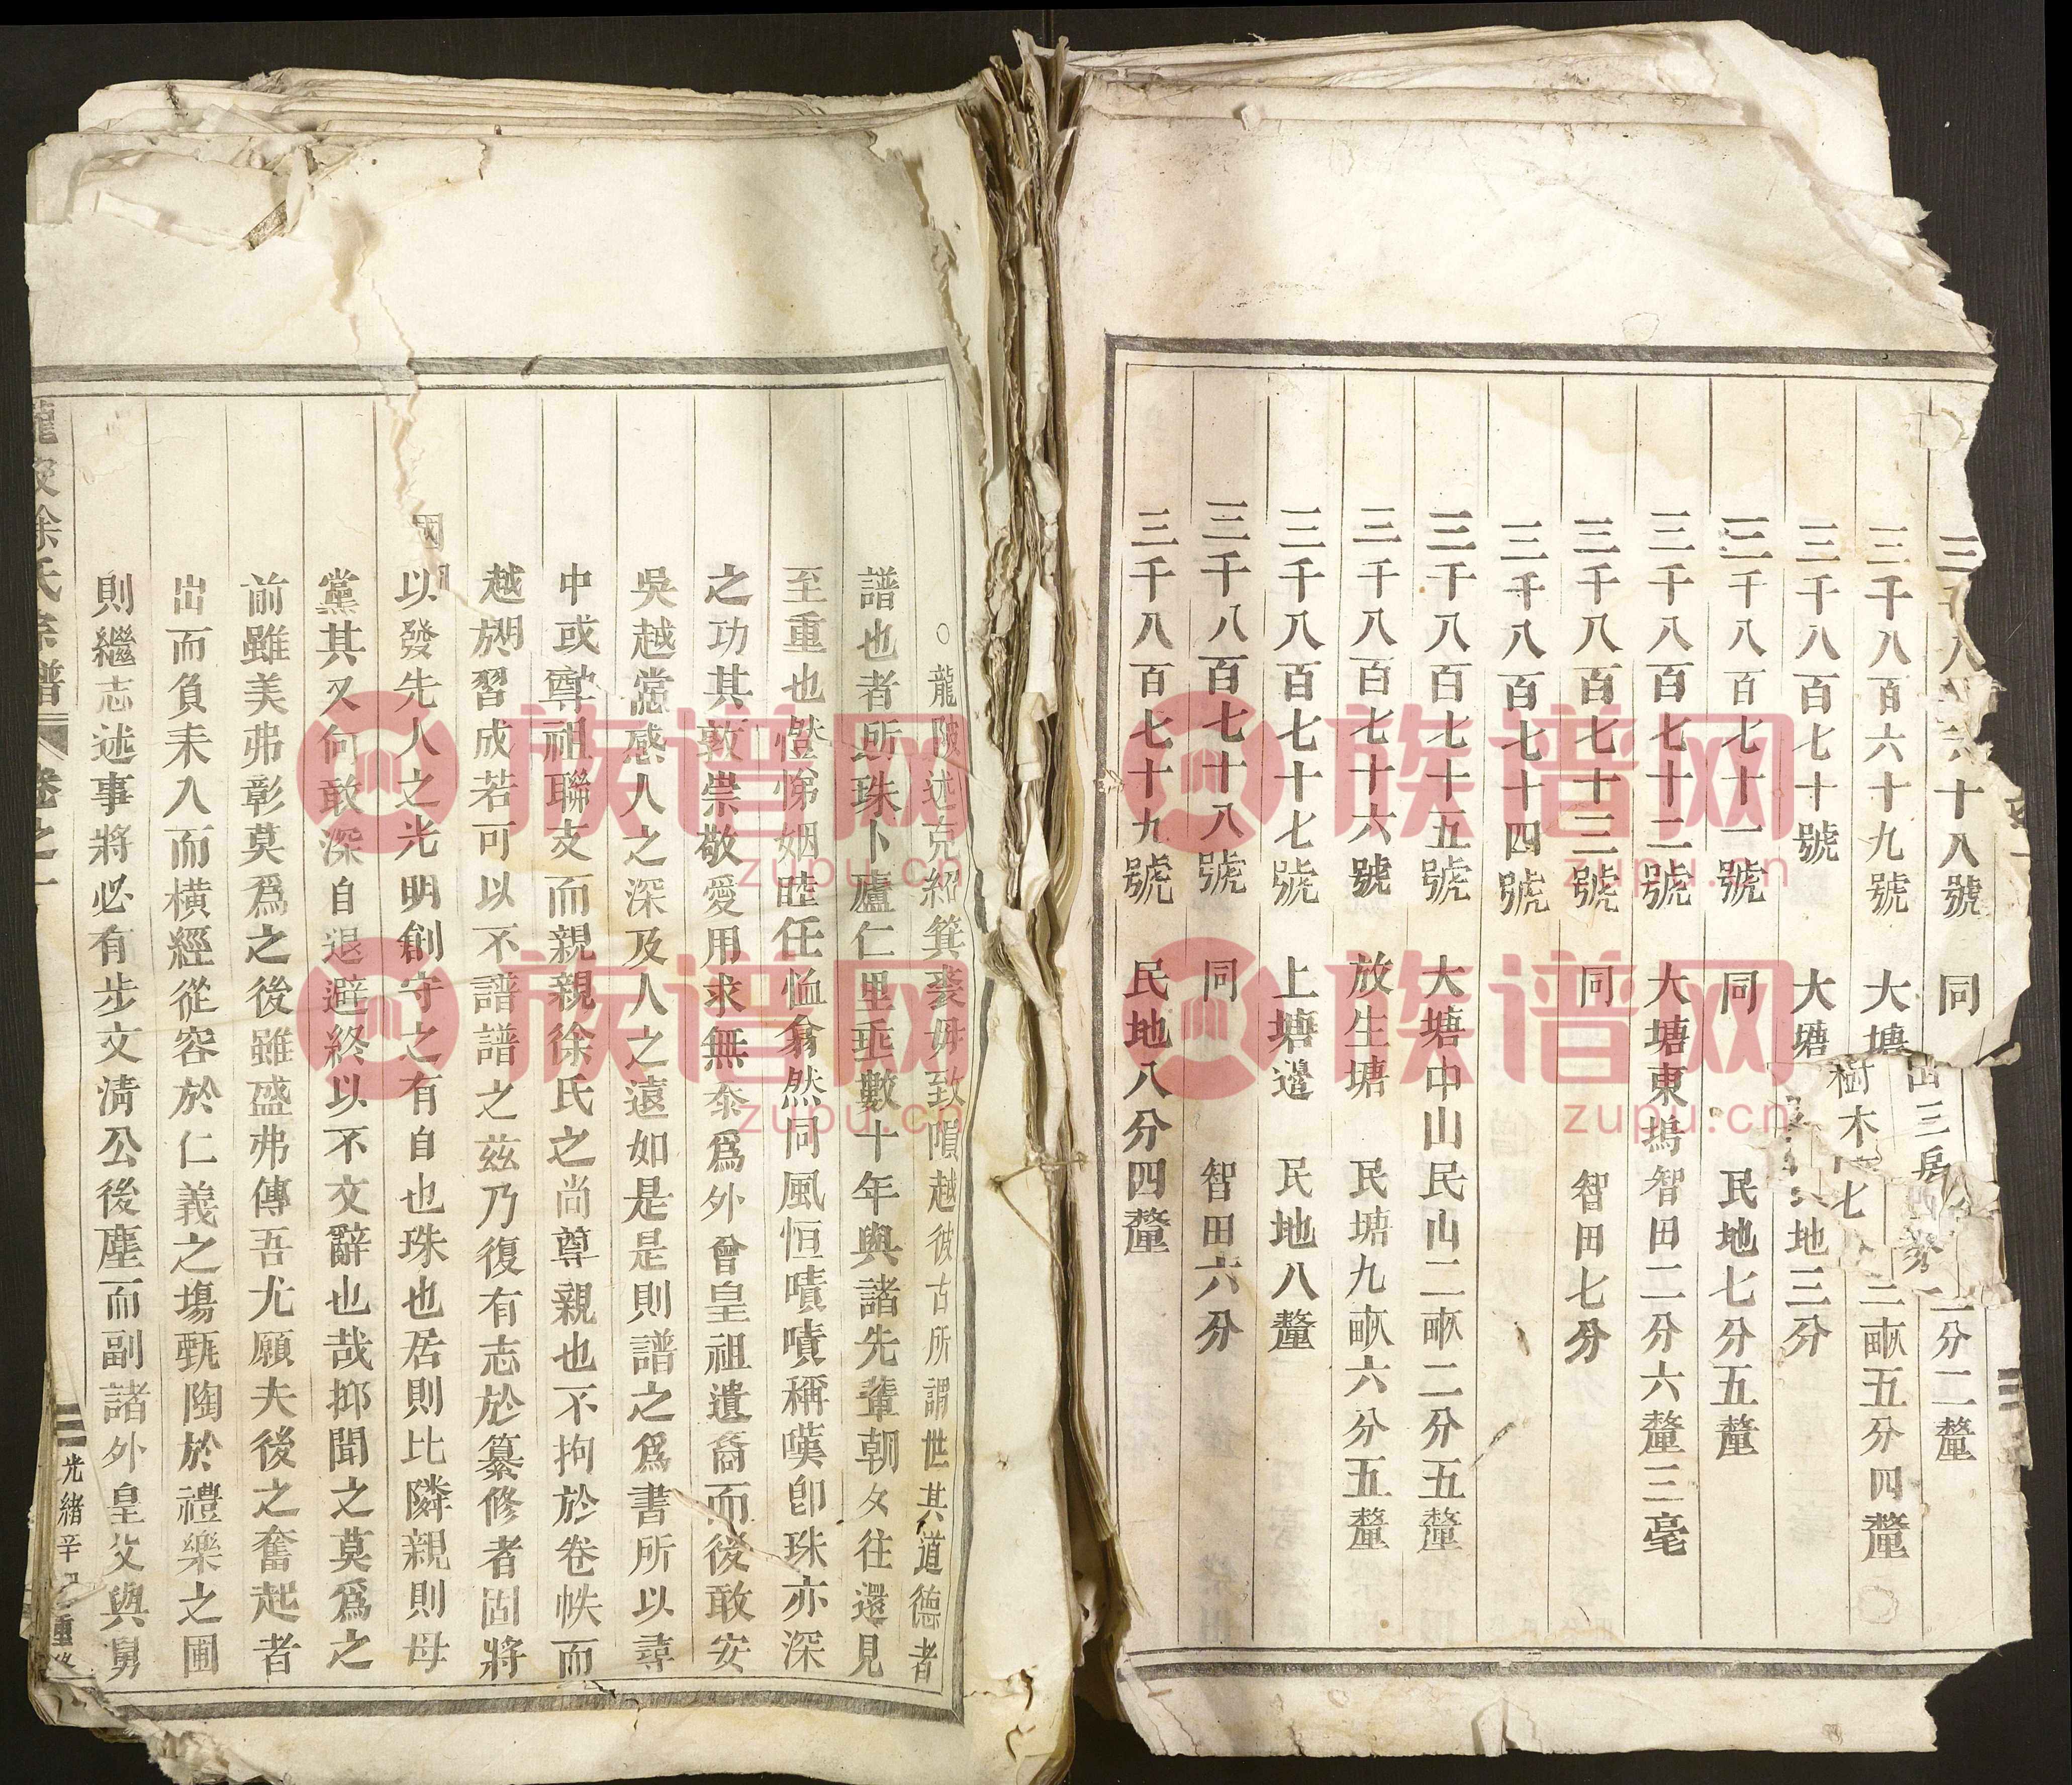 十八號 同 一分二釐
三千八百六十九號 大塘 二畝五分四釐
三千八百七十號 大塘 地三分
三千八百七十一號 同 民地七分五釐
三千八百七十二號 大塘東塢智田二分六釐三毫
三千八百七十三號 同 智田七分
三千八百七十四號
三千八百七十五號 大塘中山民山二畝二分五釐
三千八百七十六號 放生塘 民塘九畝六分五釐
三千八百七十七號 上塘邊 民地八釐
三千八百七十八號 同 智田六分
三千八百七十九號 民地八分四釐
出三房
樹木 七
○龍陂述克紹箕裘毋致隕越彼古所謂世其道德者
譜也者所珠卜廬仁里垂數十年與諸先輩朝夕往還見
至重也愷悌姻睦任恤翕然同風恒嘖嘖稱嘆卽珠亦深
之功其敦崇敬愛用求無忝爲外曾皇祖遺裔而後敢安
吳越當感人之深及人之遠如是是則譜之爲書所以尋
中或尊祖聯支而親親徐氏之尚尊親也不拘於卷帙而
越於習成若可以不譜譜之茲乃復有志於纂修者固將
國
以發先人之光明創守之有自也珠也居則比隣親則母
黨其又何敢深自退避終以不文辭也哉抑聞之莫爲之
前雖美弗彰莫爲之後雖盛弗傳吾尤願夫後之奮起者
出而負耒入而橫經從容於仁義之塲甄陶於禮樂之圃
則繼志述事將必有步文清公後塵而副諸外皇父與舅
徐氏宗譜 卷之一 光緒辛 重修
族谱网
zupu.cn
族谱网
zupu.cn
族谱网
zupu.cn
族谱网
zupu.cn